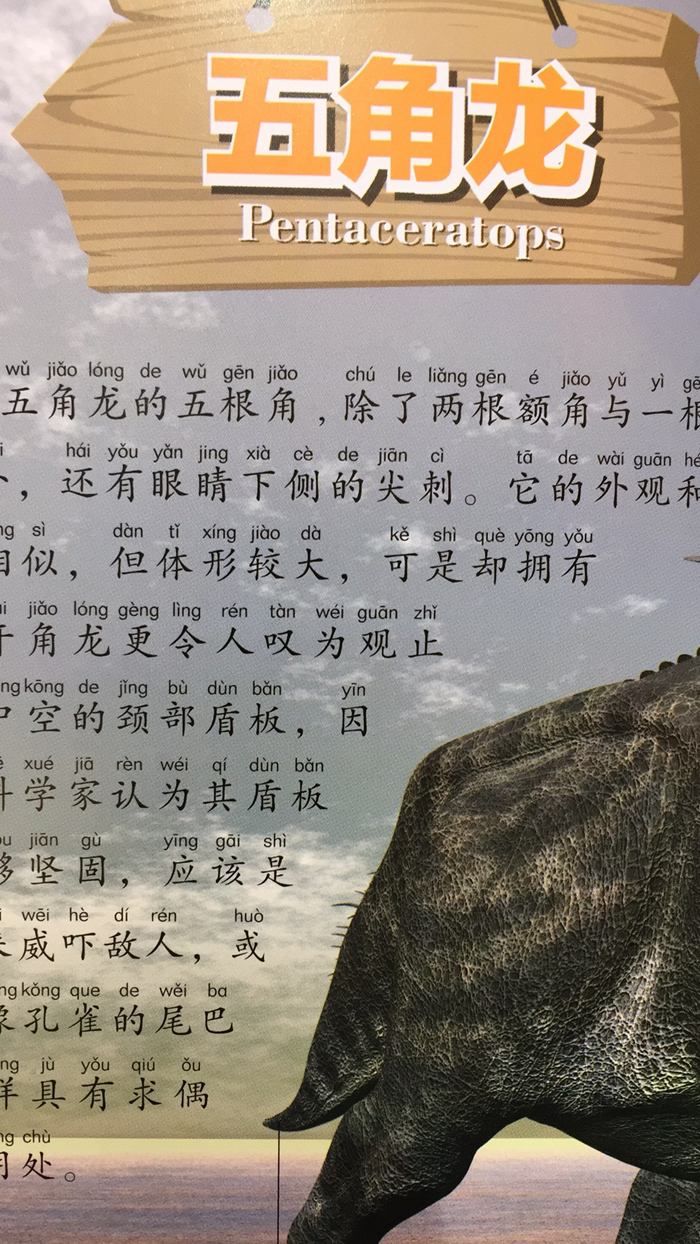 五角龙
Pentaceratops
wǔ jiǎo lóng de wǔ gēn jiǎo chú le liǎng gēn é jiǎo yǔ yì
五角龙的五根角，除了两根额角与一根
hái yǒu yǎn jing xià cè de jiān cì tā de wài guān
，还有眼睛下侧的尖刺。它的外观和
sì dàn tǐ xíng jiào dà kě shì què yōng yǒu
相似，但体形较大，可是却拥有
jiǎo lóng gèng lìng rén tàn wéi guān zhǐ
角龙更令人叹为观止
kōng de jǐng bù dùn bǎn yīn
中空的颈部盾板，因
xué jiā rèn wéi qí dùn bǎn
科学家认为其盾板
jiān gù yīng gāi shì
够坚固，应该是
wēi hè dí rén huò
来威吓敌人，或
kǒng que de wěi ba
像孔雀的尾巴
jù yǒu qiú ǒu
样具有求偶
chù
用处。